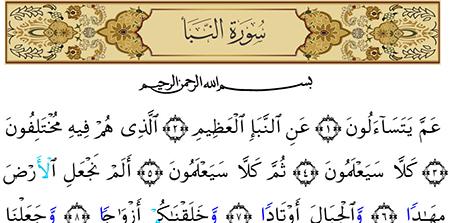 سُورَةُ النَّبَأِ
بسم الله الرحمن الرحيم
عَمَّ يَتَسَآءَلُونَ ﴿١﴾ عَنِ ٱلنَّبَإِ ٱلْعَظِيمِ ﴿٢﴾ ٱلَّذِى هُمْ فِيهِ مُخْتَلِفُونَ
﴿٣﴾ كَلَّا سَيَعْلَمُونَ ﴿٤﴾ ثُمَّ كَلَّا سَيَعْلَمُونَ ﴿٥﴾ أَلَمْ نَجْعَلِ ٱلْأَرْضَ
مِهَٰدًا ﴿٦﴾ وَٱلْجِبَالَ أَوْتَادًا ﴿٧﴾ وَخَلَقْنَٰكُمْ أَزْوَٰجًا ﴿٨﴾ وَجَعَلْنَا